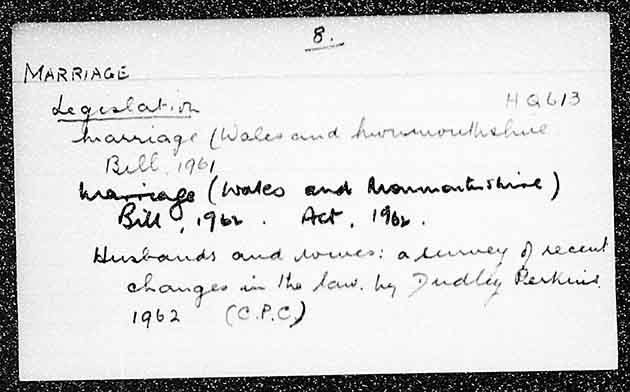 8.
MARRIAGE
Legislation HQ613
Marriage (Wales and Monmouthshire
Bill, 1961
Marriage (Wales and Monmouthshire)
Bill, 1962. Act, 1962.
Husbands and wives: a survey of recent
changes in the law. by Dudley Perkins.
1962 (C.P.C.)